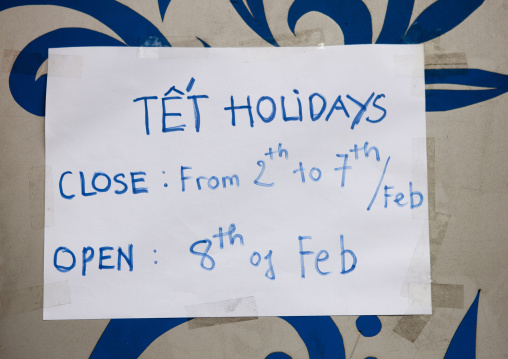 TẾT HOLiDAYS
CLOSE : From 2th to 7th/Feb
OPEN : 8th of Feb